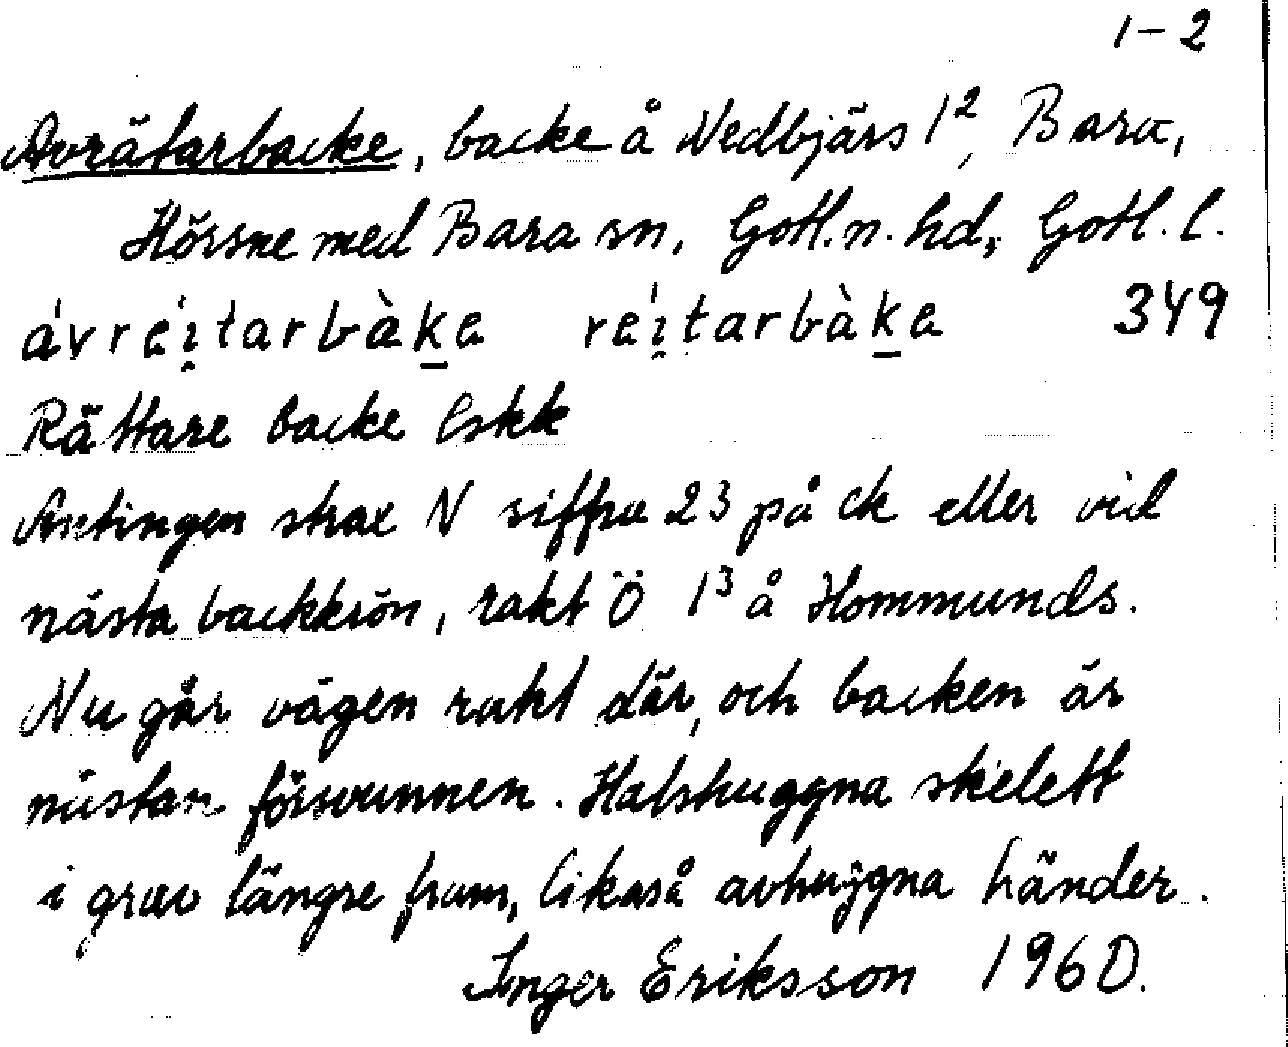 1-2
Avrätarbacke, backe å Nedbjärs 1², Bara,
Hörsne med Bara sn, Gotl. n. hd, Gotl. l.
ávréi̯tarbàka réi̯tarbàka 349
Rättare backe lskk
Antingen strax N siffra 23 på ek eller vid
nästa backkrön, rakt Ö 1³ å Hommunds.
Nu går vägen rakt där, och backen är
nästan försvunnen. Halshuggna skelett
i grav längre fram, likaså avhuggna händer.
Inger Eriksson 1960.